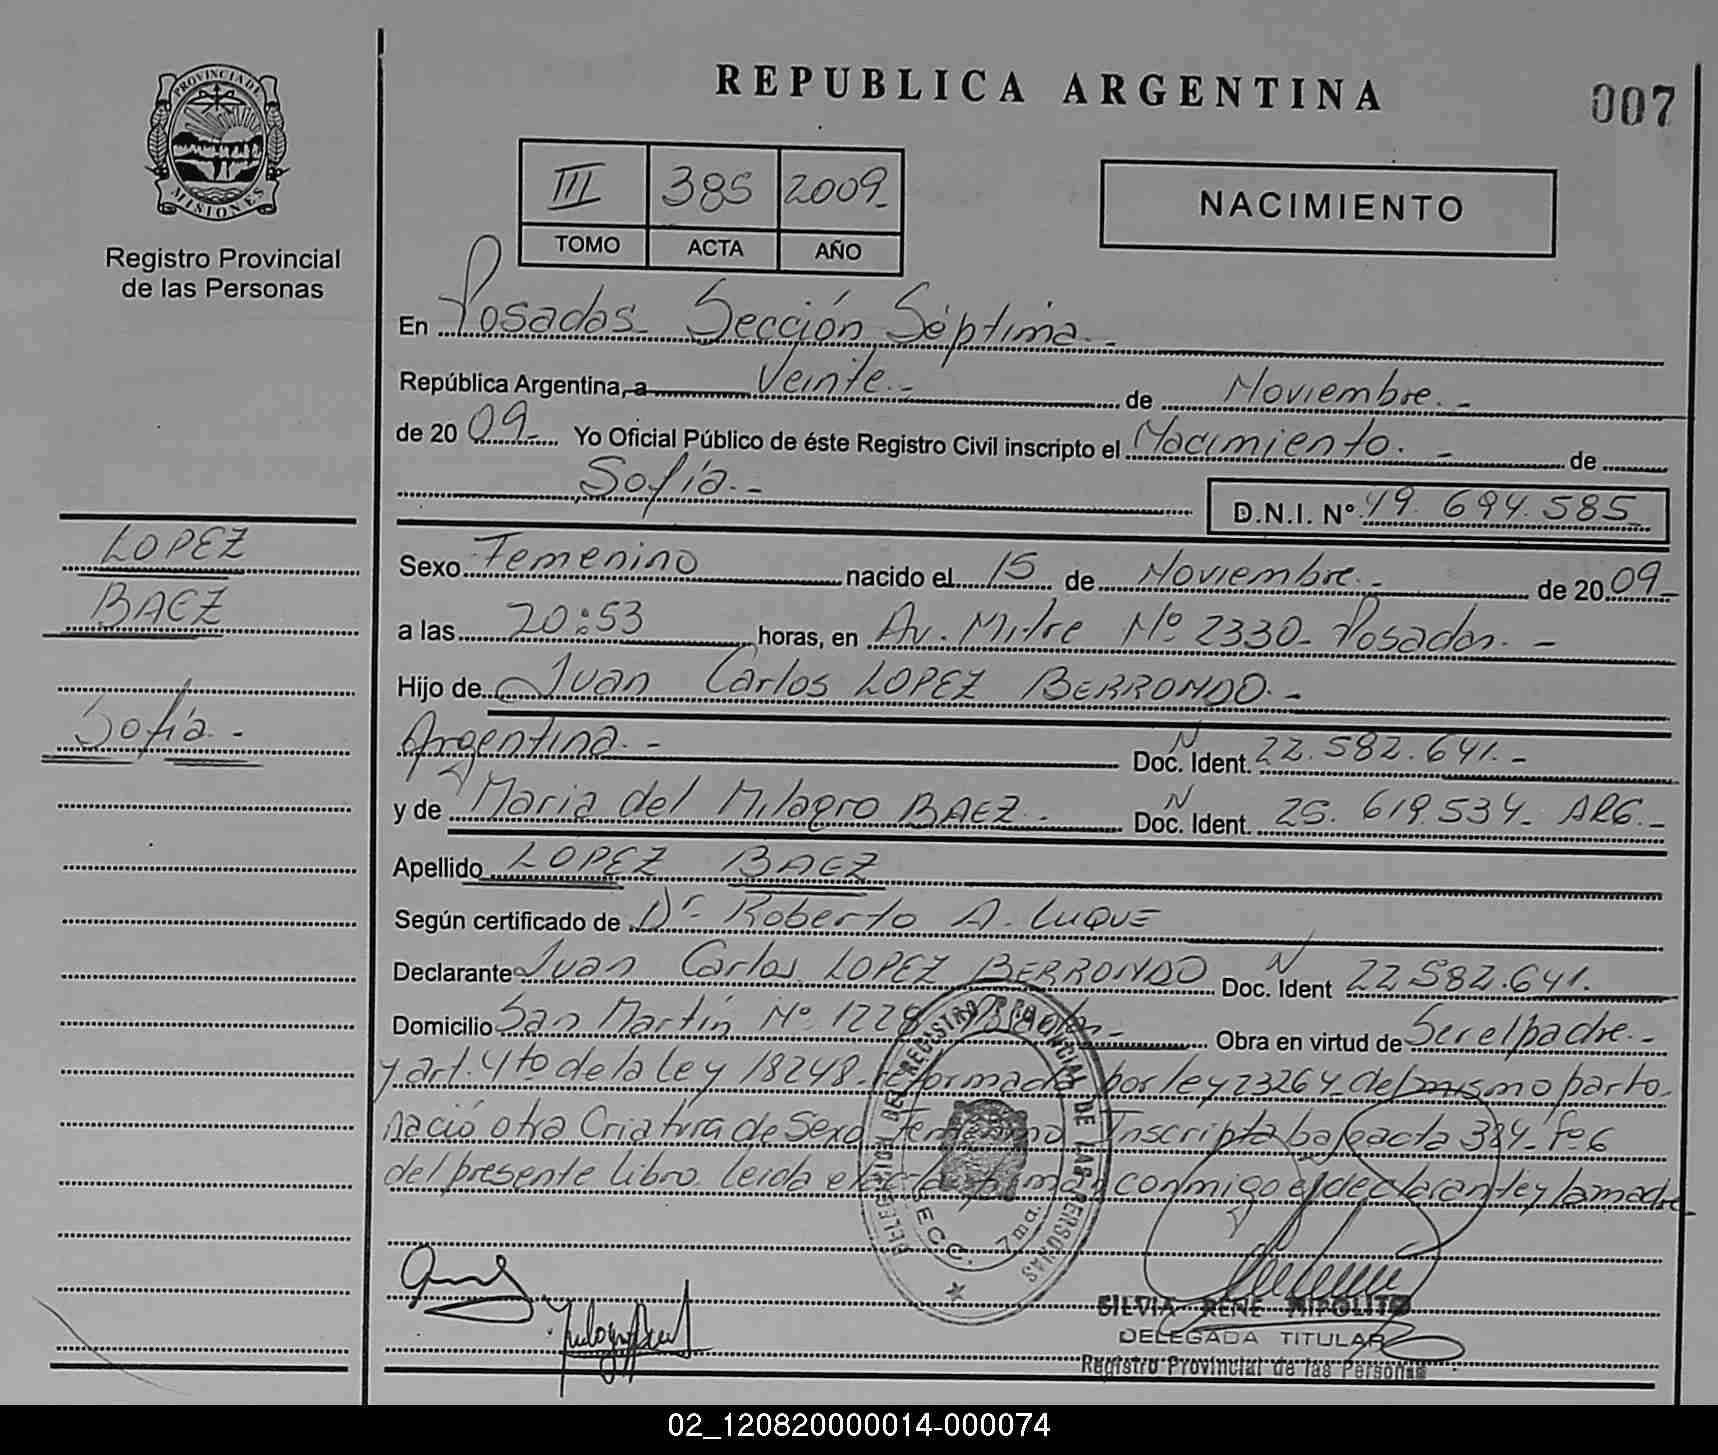 REPUBLICA ARGENTINA
007
PROVINCIA DE
MISIONES
Registro Provincial
de las Personas
III 385 2009-
TOMO ACTA AÑO
NACIMIENTO
En Posadas- Sección Séptima.-
República Argentina, a Veinte.- de Noviembre.-
de 2009- Yo Oficial Público de éste Registro Civil inscripto el Nacimiento.- de
Sofía.-
D.N.I. Nº 49.694.585-
LOPEZ
BAEZ
Sofía.-
Sexo Femenino nacido el 15 de Noviembre.- de 2009-
a las 20:53 horas, en Av. Mitre Nº 2330- Posadas.-
Hijo de Juan Carlos LOPEZ BERRONDO.-
Argentina.- Doc. Ident. N 22.582.641.-
y de Maria del Milagro BAEZ.- Doc. Ident. N 25.619.534- ARG.-
Apellido LOPEZ BAEZ
Según certificado de Dr Roberto A. LUQUE
Declarante Juan Carlos LOPEZ BERRONDO Doc. Ident N 22.582.641.
Domicilio San Martín Nº 1228 Obra en virtud de Ser el padre.-
y art. 4to de la ley 18248- reformado por ley 23264- del mismo parto-
nació otra Criatura de Sexo Femenino Inscripta bajo acta 384- Fº 6
del presente libro. leida el acta firman conmigo el declarante y la madre
DELEGACION DEL REGISTRO PROVINCIAL DE LAS PERSONAS
SECC. 7ma.
SILVIA RENE HIPOLITO
DELEGADA TITULAR
Registro Provincial de las Personas
02_120820000014-000074